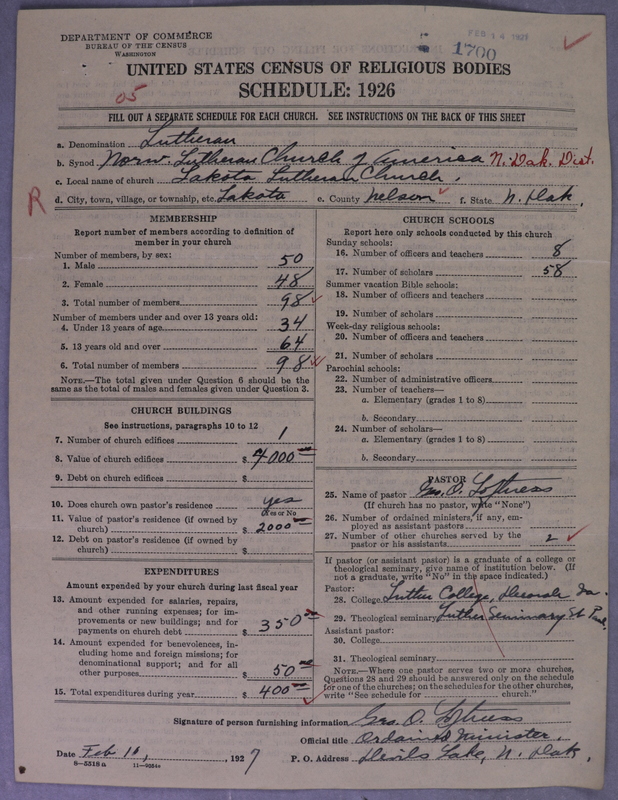 DEPARTMENT OF COMMERCE
BUREAU OF THE CENSUS
WASHINGTON
FEB 14 1927
1700
UNITED STATES CENSUS OF RELIGIOUS BODIES
SCHEDULE: 1926
05
FILL OUT A SEPARATE SCHEDULE FOR EACH CHURCH. SEE INSTRUCTIONS ON THE BACK OF THIS SHEET
a. Denomination Lutheran
b. Synod Norw. Lutheran Church of America N. Dak. Dist.
c. Local name of church Lakota Lutheran Church.
R
d. City, town, village, or township, etc. Lakota e. County Nelson f. State N. Dak.
MEMBERSHIP
Report number of members according to definition of
member in your church
Number of members, by sex:
1. Male 50
2. Female 48
3. Total number of members 98
Number of members under and over 13 years old:
4. Under 13 years of age 34
5. 13 years old and over 64
6. Total number of members 98
NOTE.—The total given under Question 6 should be
same as the total of males and females given under Question 3.
CHURCH BUILDINGS
See instructions, paragraphs 10 to 12
7. Number of church edifices 1
8. Value of church edifices $ 7000
9. Debt on church edifices $
10. Does church own pastor's residence yes
Yes or No
11. Value of pastor's residence (if owned by
church) $ 2000
12. Debt on pastor's residence (if owned by
church) $
EXPENDITURES
Amount expended by your church during last fiscal year
13. Amount expended for salaries, repairs,
and other running expenses; for im-
provements or new buildings; and for
payments on church debt $ 350
14. Amount expended for benevolences, in-
cluding home and foreign missions; for
denominational support; and for all
other purposes $ 50
15. Total expenditures during year $ 400
CHURCH SCHOOLS
Report here only schools conducted by this church
Sunday schools:
16. Number of officers and teachers 8
17. Number of scholars 58
Summer vacation Bible schools:
18. Number of officers and teachers
19. Number of scholars
Week-day religious schools:
20. Number of officers and teachers
21. Number of scholars
Parochial schools:
22. Number of administrative officers
23. Number of teachers—
a. Elementary (grades 1 to 8)
b. Secondary
24. Number of scholars—
a. Elementary (grades 1 to 8)
b. Secondary
PASTOR
25. Name of pastor Geo. O. Loftness
(If church has no pastor, write "None")
26. Number of ordained ministers, if any, em-
ployed as assistant pastors
27. Number of other churches served by the
pastor or his assistants 2
If pastor (or assistant pastor) is a graduate of a college or
theological seminary, give name of institution below. (If
not a graduate, write "No" in the space indicated.)
Pastor:
28. College Luther College, Decorah Ia.
29. Theological seminary Luther Seminary St Paul.
Assistant pastor:
30. College
31. Theological seminary
NOTE.—Where one pastor serves two or more churches,
Questions 28 and 29 should be answered only on the schedule
for one of the churches; on the schedules for the other churches,
write "See schedule for church."
Signature of person furnishing information Geo. O. Loftness
Official title Ordained Minister.
Date Feb 10, 1927
P. O. Address Devils Lake, N. Dak.
8—5318 a